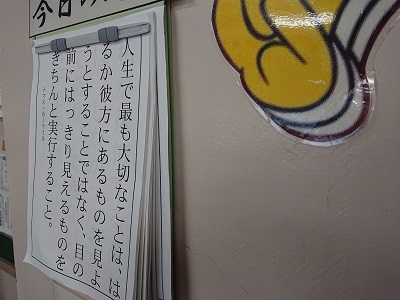 今日の
人生で最も大切なことは、は
るか彼方にあるものを見よ
うとすることではなく、目の
前にはっきり見えるものを
きちんと実行すること。
トマス・カーライル